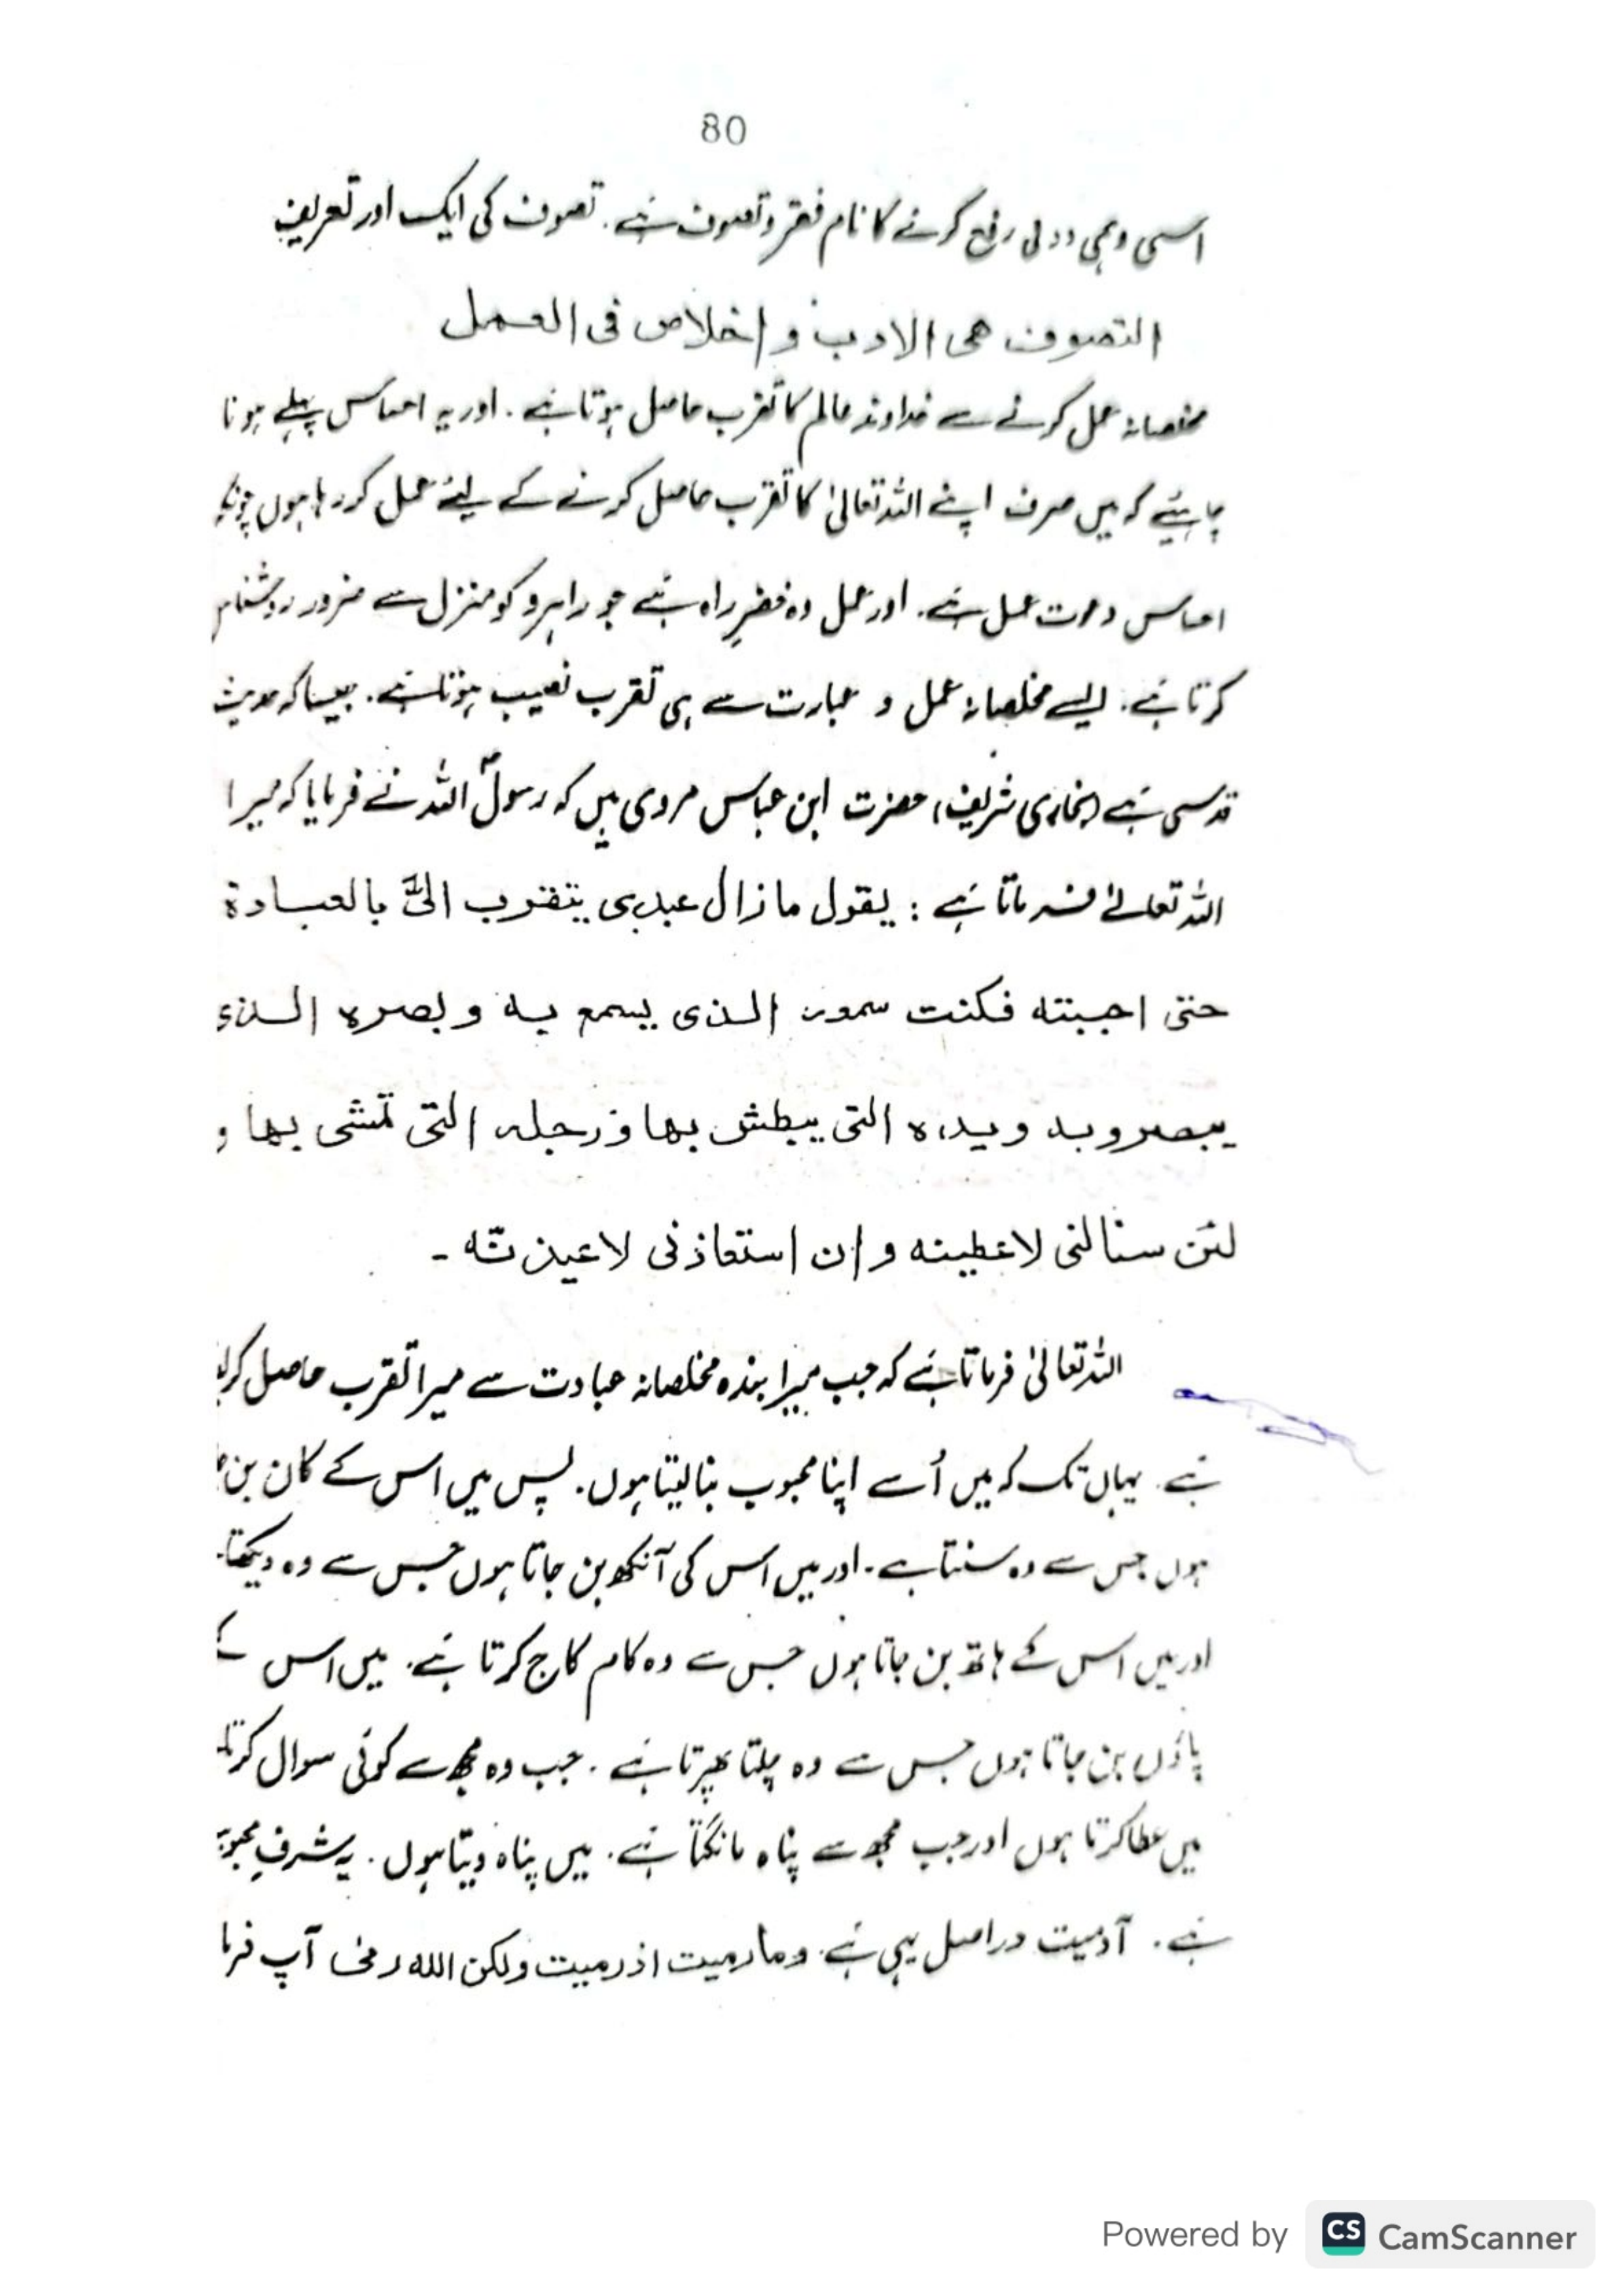 80
اسی وہمی دوئی رفع کرنے کا نام فقر و تصوف ہے۔ تصوف کی ایک اور تعریف
التصوف ھی الادب و اخلاص فی العمل
مخلصانہ عمل کرنے سے خداوند عالم کا تقرب حاصل ہوتا ہے۔ اور یہ احساس پہلے ہونا
چاہیئے کہ میں صرف اپنے اللہ تعالیٰ کا تقرب حاصل کرنے کے لیئے عمل کر رہا ہوں چونکہ
احساس دعوت عمل ہے۔ اور عمل وہ خضرِ راہ ہے جو راہرو کو منزل سے ضرور روشناس
کرتا ہے۔ ایسے مخلصانہ عمل و عبادت سے ہی تقرب نصیب ہوتا ہے۔ جیسا کہ حدیث
قدسی ہے (بخاری شریف) حضرت ابن عباس مروی ہیں کہ رسولؐ اللہ نے فرمایا کہ میرا
اللہ تعالےٰ فرماتا ہے : یقول ما زال عبدی یتقرب الیَّ بالعبادة
حتی احببته فکنت الذی یسمع به و بصرہ الذی
یبصروبه ویدہ التی یبطش بھا و رجله التی تمشی بھا و
لئن سنالنی لاعطینه و ان استعاذنی لاعیذ تّه ۔
اللہ تعالیٰ فرماتا ہے کہ جب میرا بندہ مخلصانہ عبادت سے میرا تقرب حاصل کرلیتا
ہے۔ یہاں تک کہ میں اُسے اپنا محبوب بنا لیتا ہوں۔ پس میں اس کے کان بن
ہوں جس سے وہ سنتا ہے۔ اور میں اس کی آنکھ بن جاتا ہوں جس سے وہ دیکھتا
اور میں اس کے ہاتھ بن جاتا ہوں جس سے وہ کام کاج کرتا ہے۔ میں اس کے
پاؤں بن جاتا ہوں جس سے وہ چلتا پھرتا ہے۔ جب وہ مجھ سے کوئی سوال کرتا
میں عطا کرتا ہوں اور جب مجھ سے پناہ مانگتا ہے۔ میں پناہ دیتا ہوں۔ یہ شرفِ
ہے۔ آدمیت دراصل یہی ہے۔ وما رمیت اذ رمیت ولکن الله رمیٰ آپ فرما
Powered by CS CamScanner